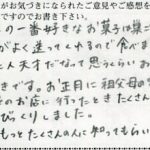 がお気づきになられたご意見やご感想を
ですのでお書き下さい。
の一番好きなお菓子は
がよく送ってくれるので食べま
と人天才だなって思うくらいお
きです。お正月に祖父母の
のお店に行ったときたくさん
びっくりしました。
もっとたくさんの人に知ってもらい